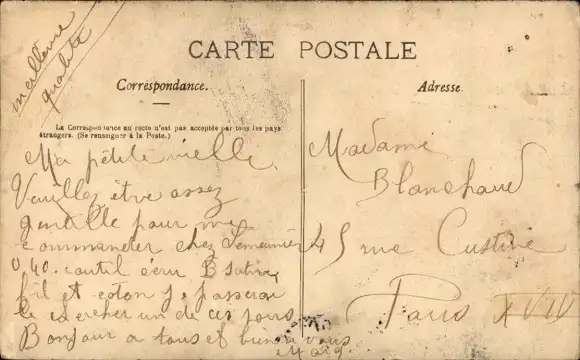 meilleure
qualité
CARTE POSTALE
Correspondance.
La Correspondance au recto n'est pas acceptée par tous les pays
étrangers. (Se renseigner à la Poste.)
Ma petite vielle
Veuillez être assez
gentille pour me
commander chez
0,40 coutil écru B
fil et coton je passerai
le chercher un de ces jours
Bonjour a tous et bien a vous
Marg.
Adresse.
Madame
Blanchaud
45 rue Custine
Paris XVIII